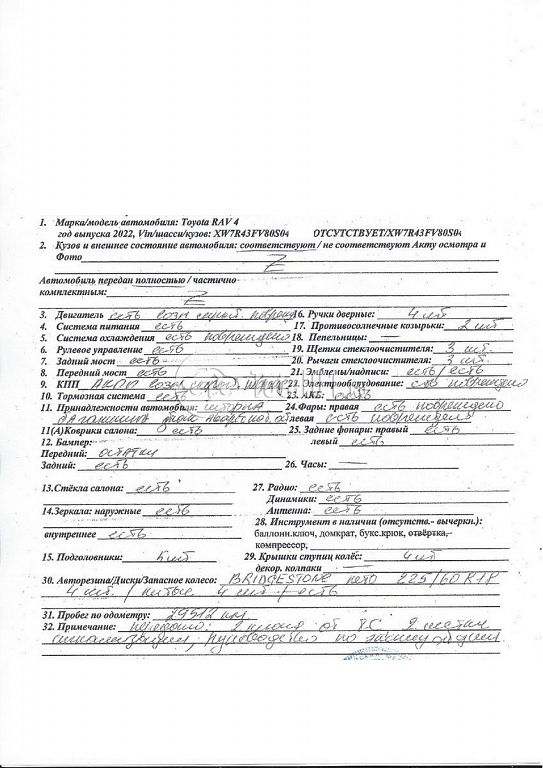 1. Марка/модель автомобиля: Toyota RAV 4
год выпуска 2022, Vin/шасси/кузов: XW7R43FV80S04 ОТСУТСТВУЕТ/XW7R43FV80S04
2. Кузов и внешнее состояние автомобиля: соответствуют / не соответствуют Акту осмотра и
Фото Z
Автомобиль передан полностью / частично
комплектным: Z
3. Двигатель есть возм скрыт. поврежд
16. Ручки дверные: 4 шт
4. Система питания есть
17. Противосолнечные козырьки: 2 шт
5. Система охлаждения есть повреждено
18. Пепельницы:
6. Рулевое управление есть
19. Щетки стеклоочистителя: 3 шт
7. Задний мост есть
20. Рычаги стеклоочистителя: 3 шт
8. Передний мост есть
21. Эмблемы/надписи: есть/есть
9. КПП АКПП возм скрыт
22. Электрооборудование: есть повреждено
10. Тормозная система есть
23. АКБ: есть
11. Принадлежности автомобиля:
24. Фары: правая есть повреждено
левая есть повреждена
11(А)Коврики салона: есть
25. Задние фонари: правый есть
12. Бампер: левый есть
Передний: остатки
Задний: есть
26. Часы:
13. Стёкла салона: есть
27. Радио: есть
Динамики: есть
14. Зеркала: наружные есть
Антенна: есть
28. Инструмент в наличии (отсутств.- вычеркн.):
внутреннее есть
баллонн.ключ, домкрат, букс.крюк, отвёртка,
компрессор,
15. Подголовники: 5 шт
29. Крышки ступиц колёс: 4 шт
декор. колпаки
30. Авторезина/Диски/Запасное колесо: BRIDGESTONE лето 225/60 R18
4 шт. / литые 4 шт / есть
31. Пробег по одометру: 29512 км
32. Примечание: передано: 2 ключа от ТС 2 метки
сигнализации, руководство по эксплуатации